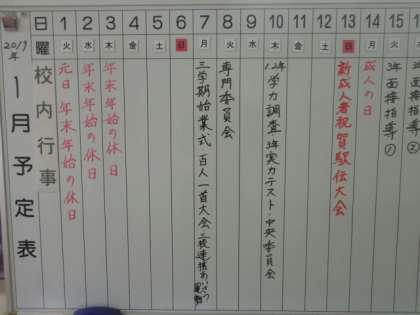 2019年
1月予定表
日 1 2 3 4 5 6 7 8 9 10 11 12 13 14 15 16
曜 火 水 木 金 土 日 月 火 水 木 金 土 日 月 火 水
校内行事
元日 年末年始の休日
年末年始の休日
年末年始の休日
三学期始業式 百人一首大会 三校連携あいさつ運動
専門委員会
1.2年学力調査 3年実力テスト・中央委員会
新成人者祝賀駅伝大会
成人の日
3年面接指導①
3年面接指導②